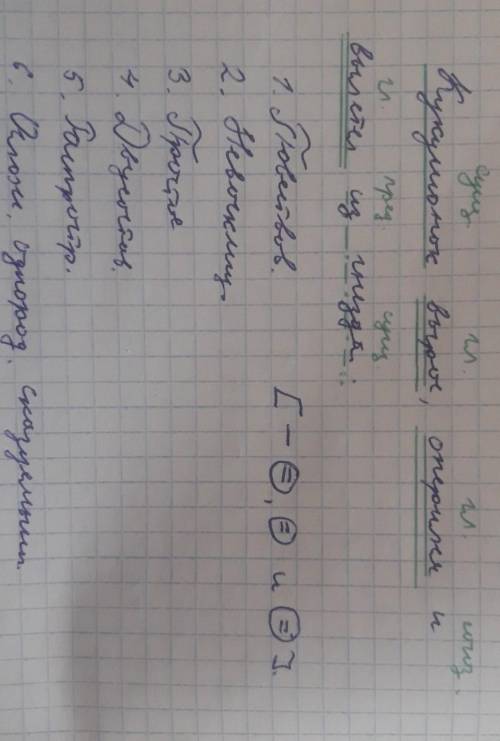 сущ. гл. гл. союз.
Кукушонок вырос, оперился и
гл. пред. сущ
вылетел из гнезда.
1. Повествов.
2. Невосклиц.
[ – =, = и = ].
3. Простое
4. Двусостав.
5. Распростр.
6. Ослож. однород. сказуемыми.